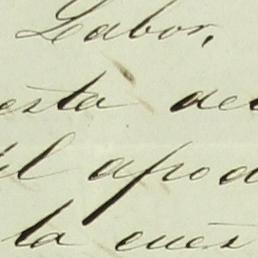 Labor,
esta de
el apod
la cues